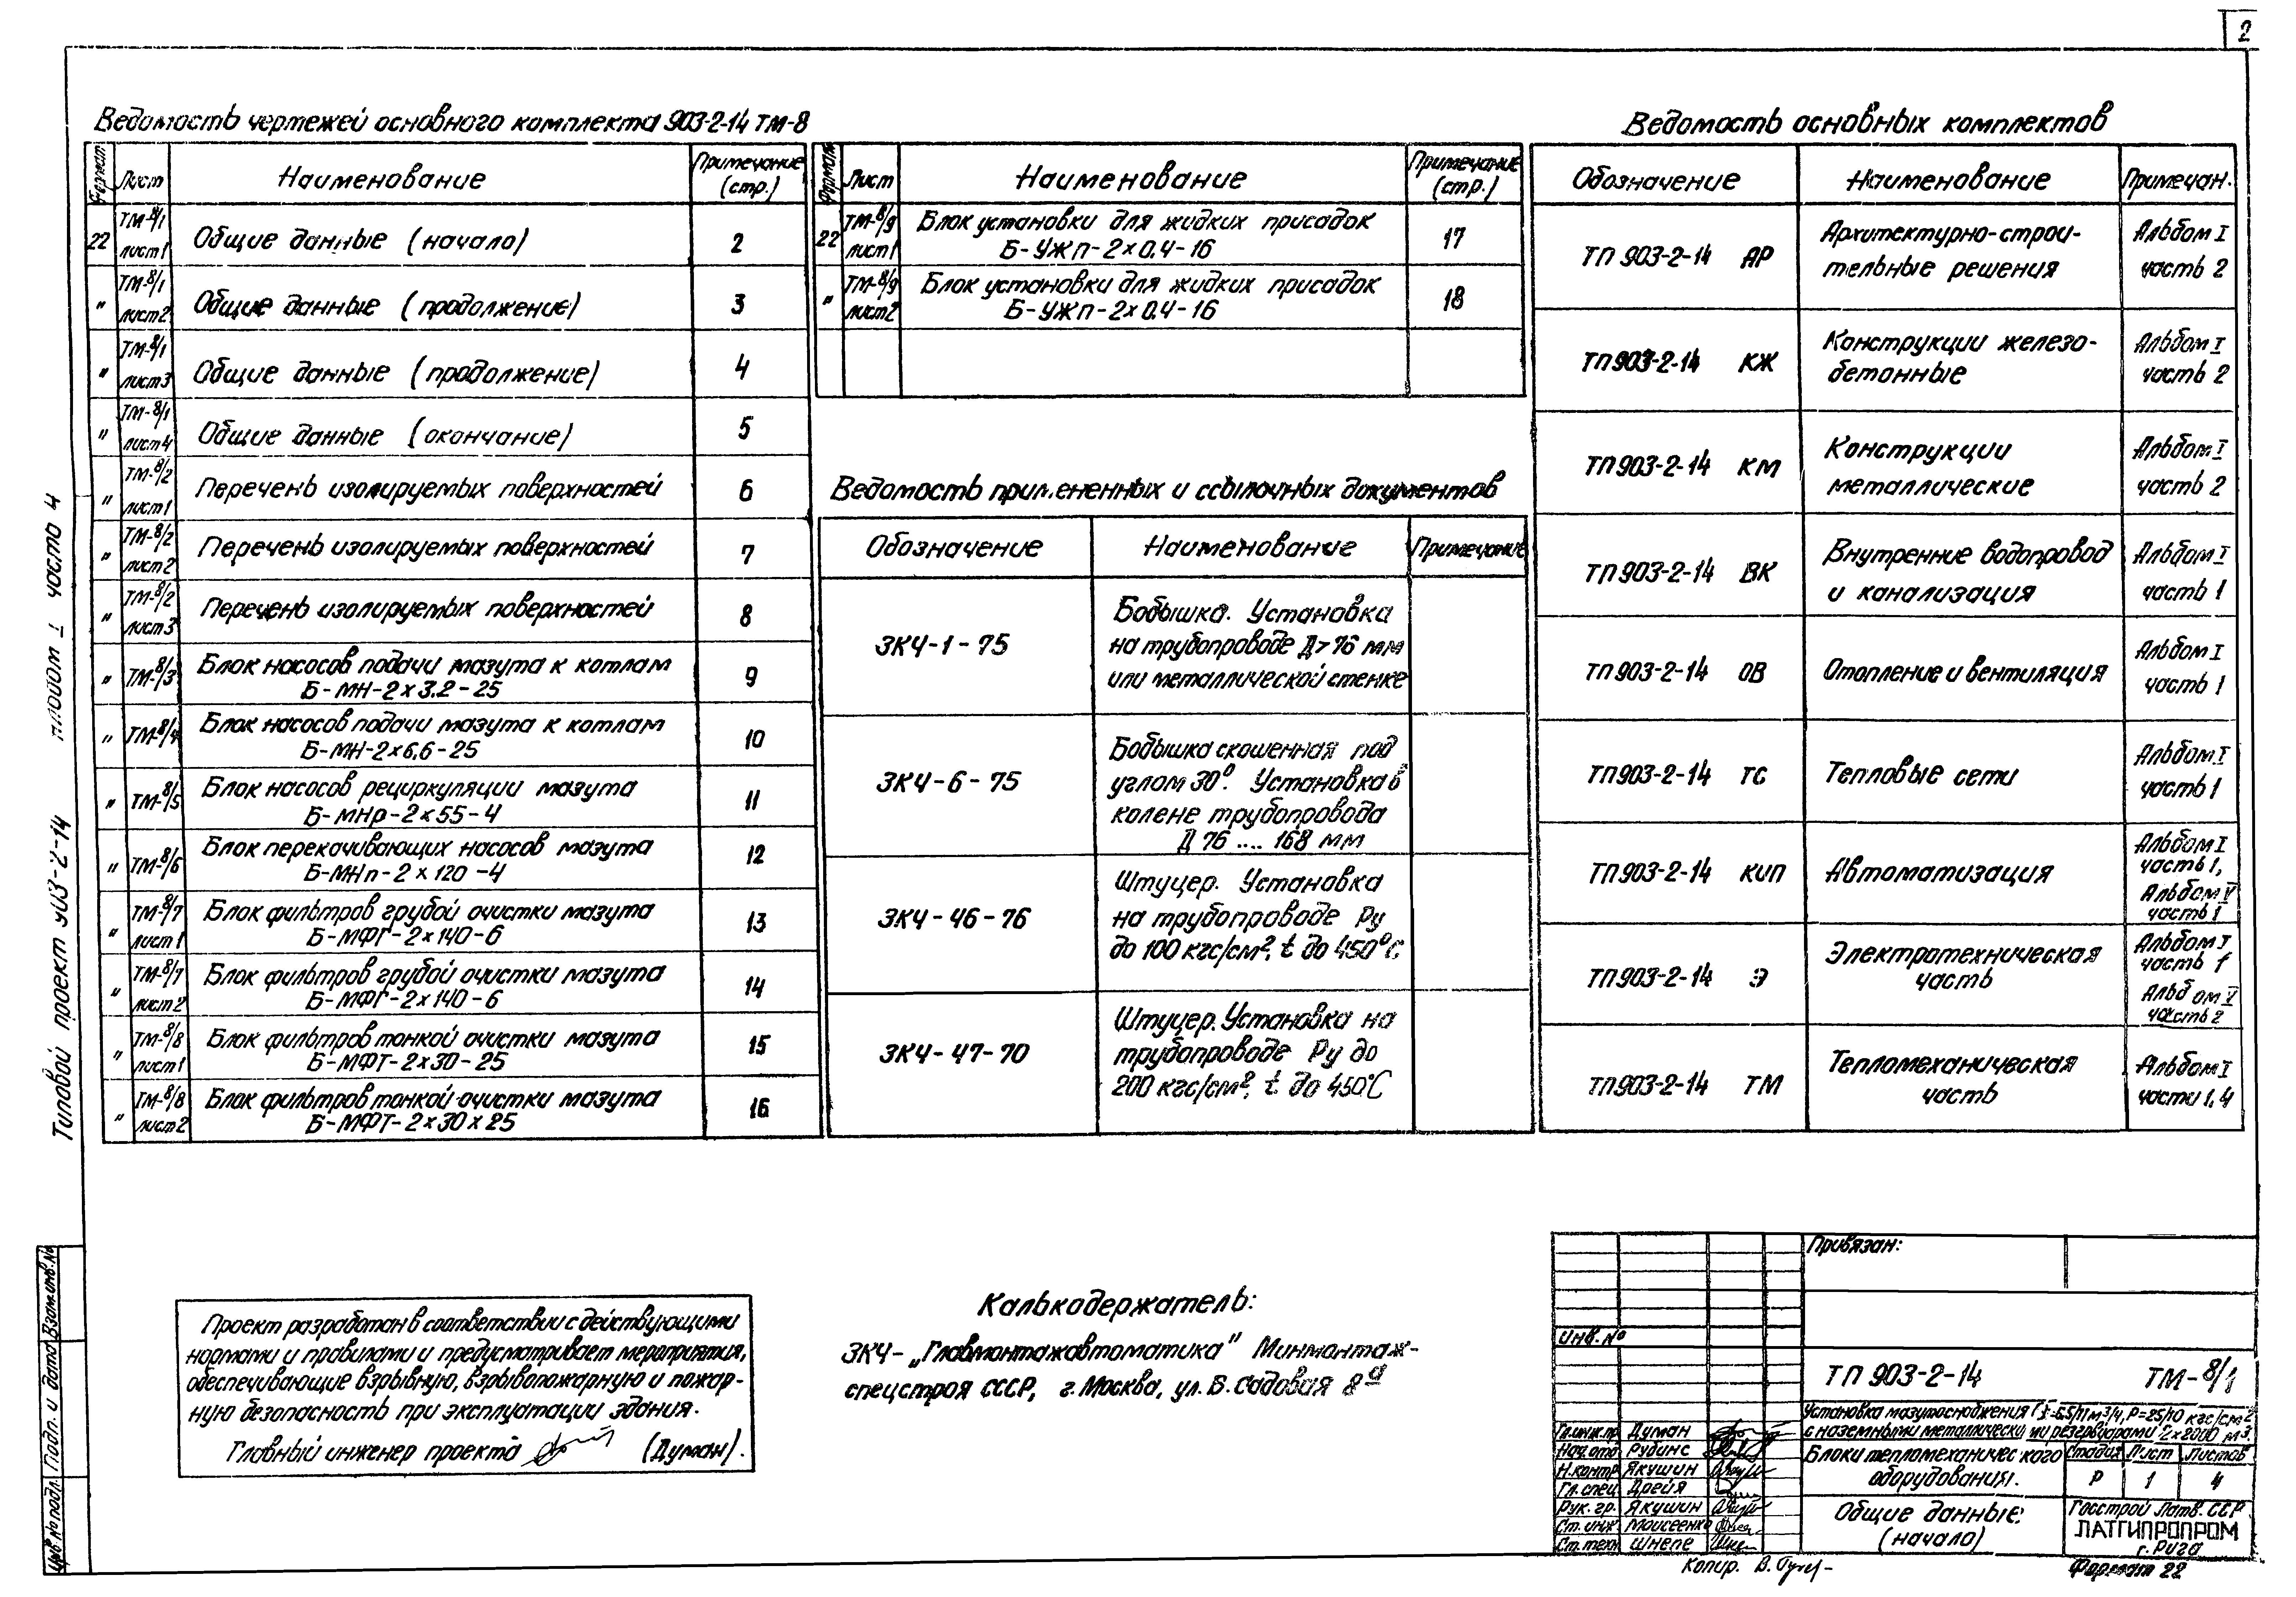 2
Ведомость чертежей основного комплекта 903-2-14 ТМ-8
Формат Лист Наименование Примечание (стр.)
22 ТМ-8/1 лист1 Общие данные (начало) 2
" ТМ-8/1 лист2 Общие данные (продолжение) 3
" ТМ-8/1 лист3 Общие данные (продолжение) 4
" ТМ-8/1 лист4 Общие данные (окончание) 5
" ТМ-8/2 лист1 Перечень изолируемых поверхностей 6
" ТМ-8/2 лист2 Перечень изолируемых поверхностей 7
" ТМ-8/2 лист3 Перечень изолируемых поверхностей 8
" ТМ-8/3 Блок насосов подачи мазута к котлам
Б-МН-2×3.2-25 9
" ТМ-8/4 Блок насосов подачи мазута к котлам
Б-МН-2×6,6-25 10
" ТМ-8/5 Блок насосов рециркуляции мазута
Б-МНр-2×55-4 11
" ТМ-8/6 Блок перекачивающих насосов мазута
Б-МНп-2×120-4 12
" ТМ-8/7 лист1 Блок фильтров грубой очистки мазута
Б-МФГ-2×140-6 13
" ТМ-8/7 лист2 Блок фильтров грубой очистки мазута
Б-МФГ-2×140-6 14
" ТМ-8/8 лист1 Блок фильтров тонкой очистки мазута
Б-МФТ-2×30-25 15
" ТМ-8/8 лист2 Блок фильтров тонкой очистки мазута
Б-МФТ-2×30×25 16
Формат Лист Наименование Примечание (стр.)
22 ТМ-8/9 лист1 Блок установки для жидких присадок
Б-УЖп-2×0.4-16 17
" ТМ-8/9 лист2 Блок установки для жидких присадок
Б-УЖп-2×0.4-16 18
Ведомость примененных и ссылочных документов
Обозначение Наименование Примечание
ЗКЧ-1-75 Бобышка. Установка
на трубопроводе Д>76 мм
или металлической стенке
ЗКЧ-6-75 Бобышка скошенная под
углом 30°. Установка в
колене трубопровода
Д 76 .... 168 мм
ЗКЧ-46-76 Штуцер. Установка
на трубопроводе Ру
до 100 кгс/см², t до 450°С.
ЗКЧ-47-70 Штуцер. Установка на
трубопроводе Ру до
200 кгс/см², t до 450°С
Ведомость основных комплектов
Обозначение Наименование Примечан.
ТП 903-2-14 АР Архитектурно-строи-
тельные решения Альбом I часть 2
ТП903-2-14 КЖ Конструкции железо-
бетонные Альбом I часть 2
ТП903-2-14 КМ Конструкции
металлические Альбом I часть 2
ТП903-2-14 ВК Внутренние водопровод
и канализация Альбом I часть 1
ТП903-2-14 ОВ Отопление и вентиляция Альбом I часть 1
ТП903-2-14 ТС Тепловые сети Альбом I часть 1
ТП903-2-14 КИП Автоматизация Альбом I часть 1, Альбом V часть 1
ТП903-2-14 Э Электротехническая
часть Альбом I часть 1 Альбом V часть 2
ТП903-2-14 ТМ Тепломеханическая
часть Альбом I части 1,4
Типовой проект 903-2-14 альбом I часть 4
Взам.инв.№
Подп. и дата
Инв.№ подл.
Проект разработан в соответствии с действующими
нормами и правилами и предусматривает мероприятия,
обеспечивающие взрывную, взрывопожарную и пожар-
ную безопасность при эксплуатации здания.
Главный инженер проекта (Думан).
Калькодержатель:
ЗКЧ-„Главмонтажавтоматика" Минмонтаж-
спецстроя СССР, г. Москва, ул. Б. Садовая 8а
Привязан:
инв.№
ТП 903-2-14 ТМ-8/1
Установка мазутоснабжения =6.5/11 м³/ч, Р=25/10 кгс/см²
с наземными металлическими резервуарами 2×2000 м³.
Гл.инж.пр. Думан
Нач.отд. Рудинс
Н.контр. Якушин
Гл.спец. Дрейя
Рук.гр. Якушин
Ст.инж. Моисеенко
Ст.техн. Шнепе
Блоки тепломеханического
оборудования.
Стадия Лист Листов
Р 1 4
Общие данные
(начало)
Госстрой Латв.ССР
ЛАТГИПРОПРОМ
г. Рига
Копир.
Формат 22